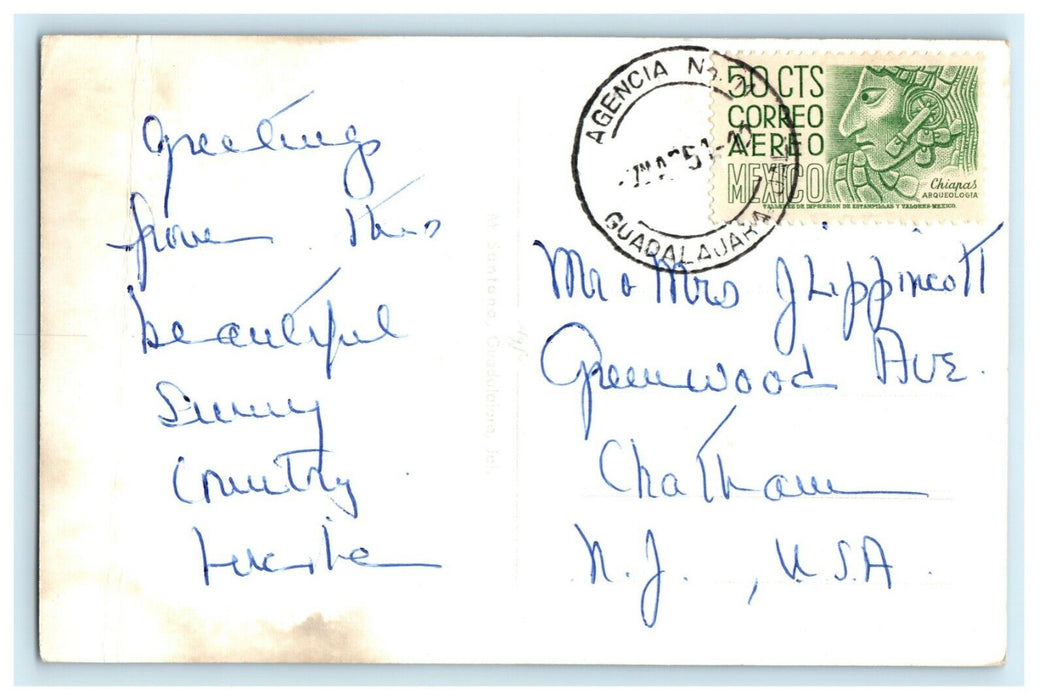 Greetings
from this
beautiful
Sunny
Country
AGENCIA No.
GUADALAJARA JAL
50 CTS
CORREO
AEREO
MEXICO
Chiapas
ARQUEOLOGIA
TALLERES DE IMPRESION DE ESTAMPILLAS Y VALORES-MEXICO.
Mr & Mrs J Lippincott
Greenwood Ave.
Chatham
N.J., U.S.A.
M. Santana, Guadalajara, Jal.